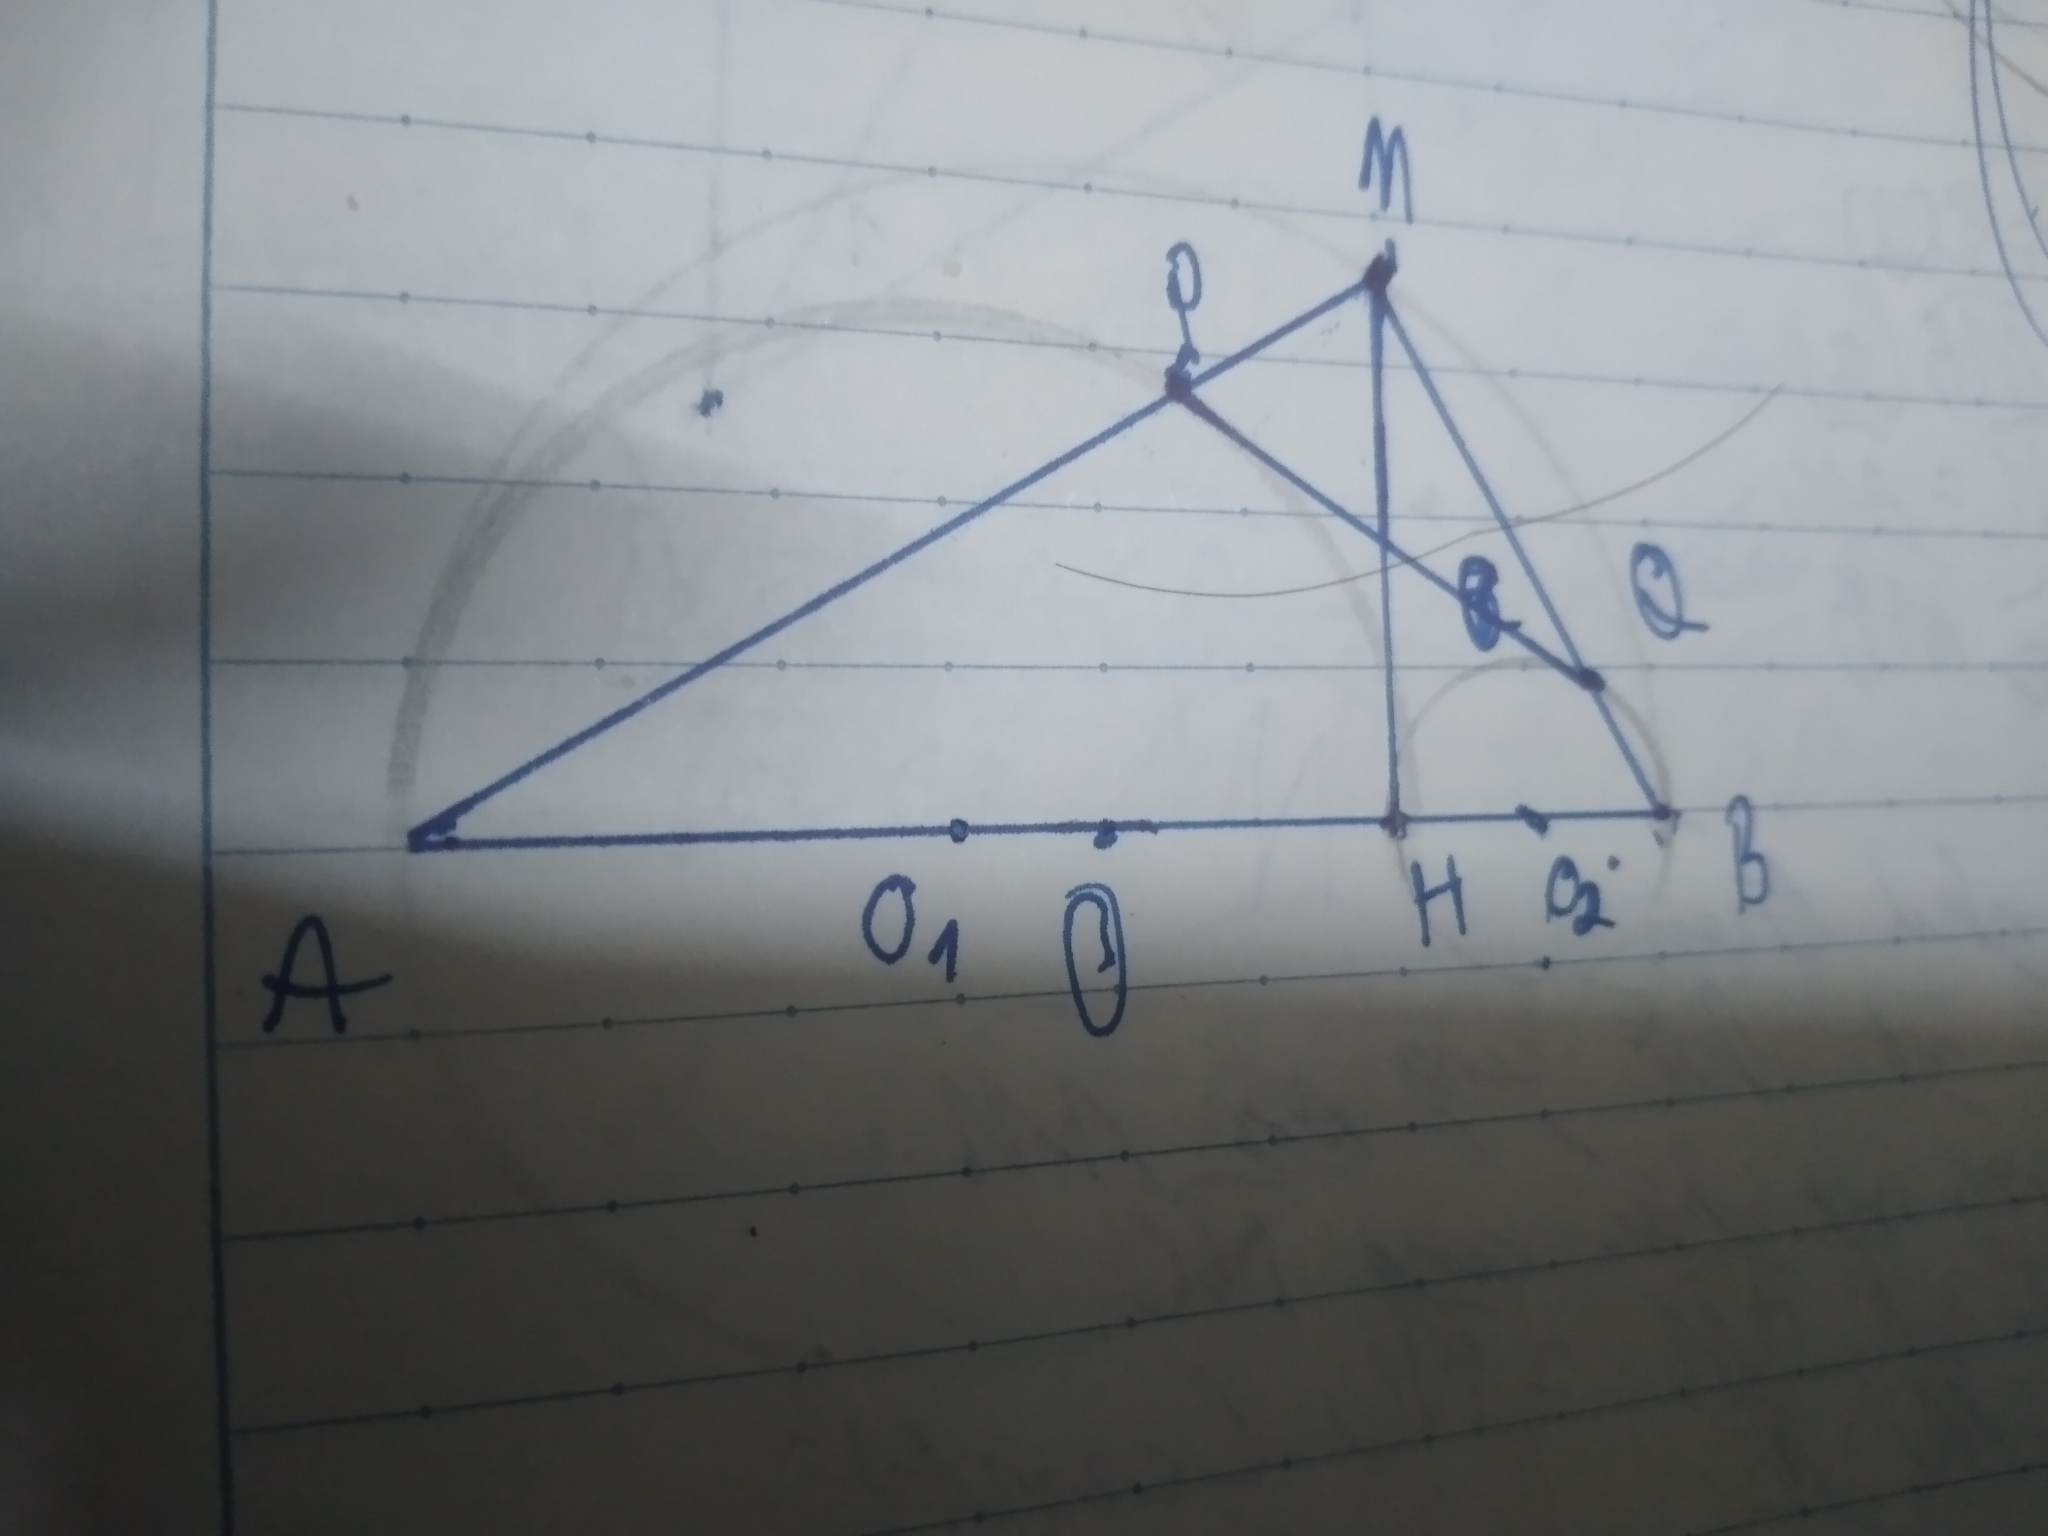 M
P
Q
A
O1
O
H
O2
B